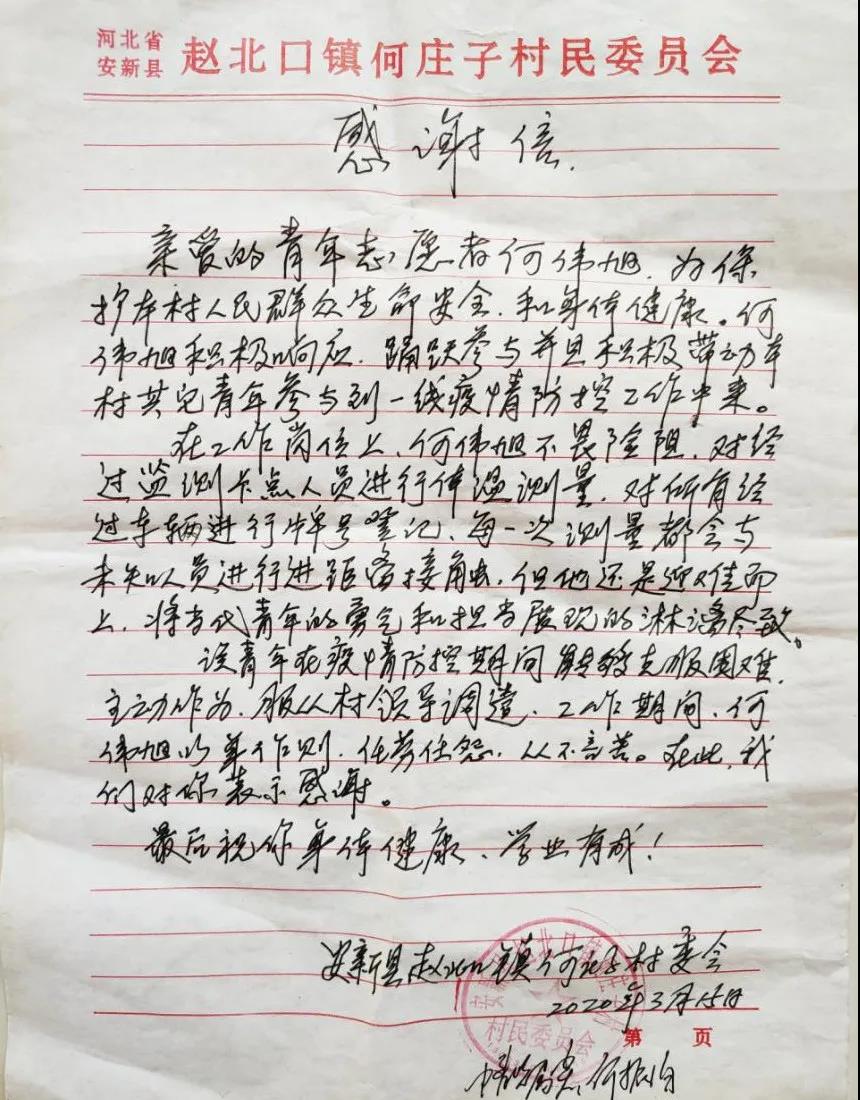 河北省
安新县
赵北口镇何庄子村民委员会
感谢信.
亲爱的青年志愿者何伟旭.为保
护本村人民群众生命安全.和身体健康。何
伟旭积极响应.踊跃参与并且积极带动本
村其它青年参与到一线疫情防控工作中来。
在工作岗位上.何伟旭不畏险阻.对经
过监测卡点人员进行体温测量.对所有经
过车辆进行牌号登记、每一次测量都会与
未知人员进行进距离接触.但他还是迎难而
上.将当代青年的勇气和担当展现的淋漓尽致。
该青年在疫情防控期间能够克服困难.
主动作为.服从村领导调遣.工作期间.何
伟旭以身作则.任劳任怨.从不言苦。在此.我
们对你表示感谢。
最后祝你身体健康、学业有成!
安新县赵北口镇何庄子村委会
2020年3月15日
村民委员会
第 页
何振